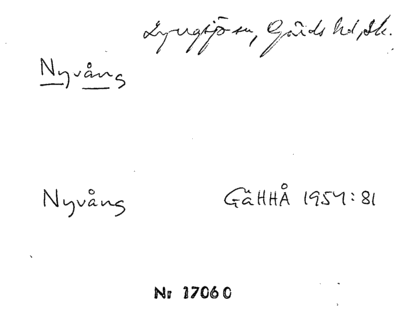 Lyngsjö sn, Gärds hd, Sk.
Nyvång
Nyvång GäHHÅ 1954:81
Nr 17060